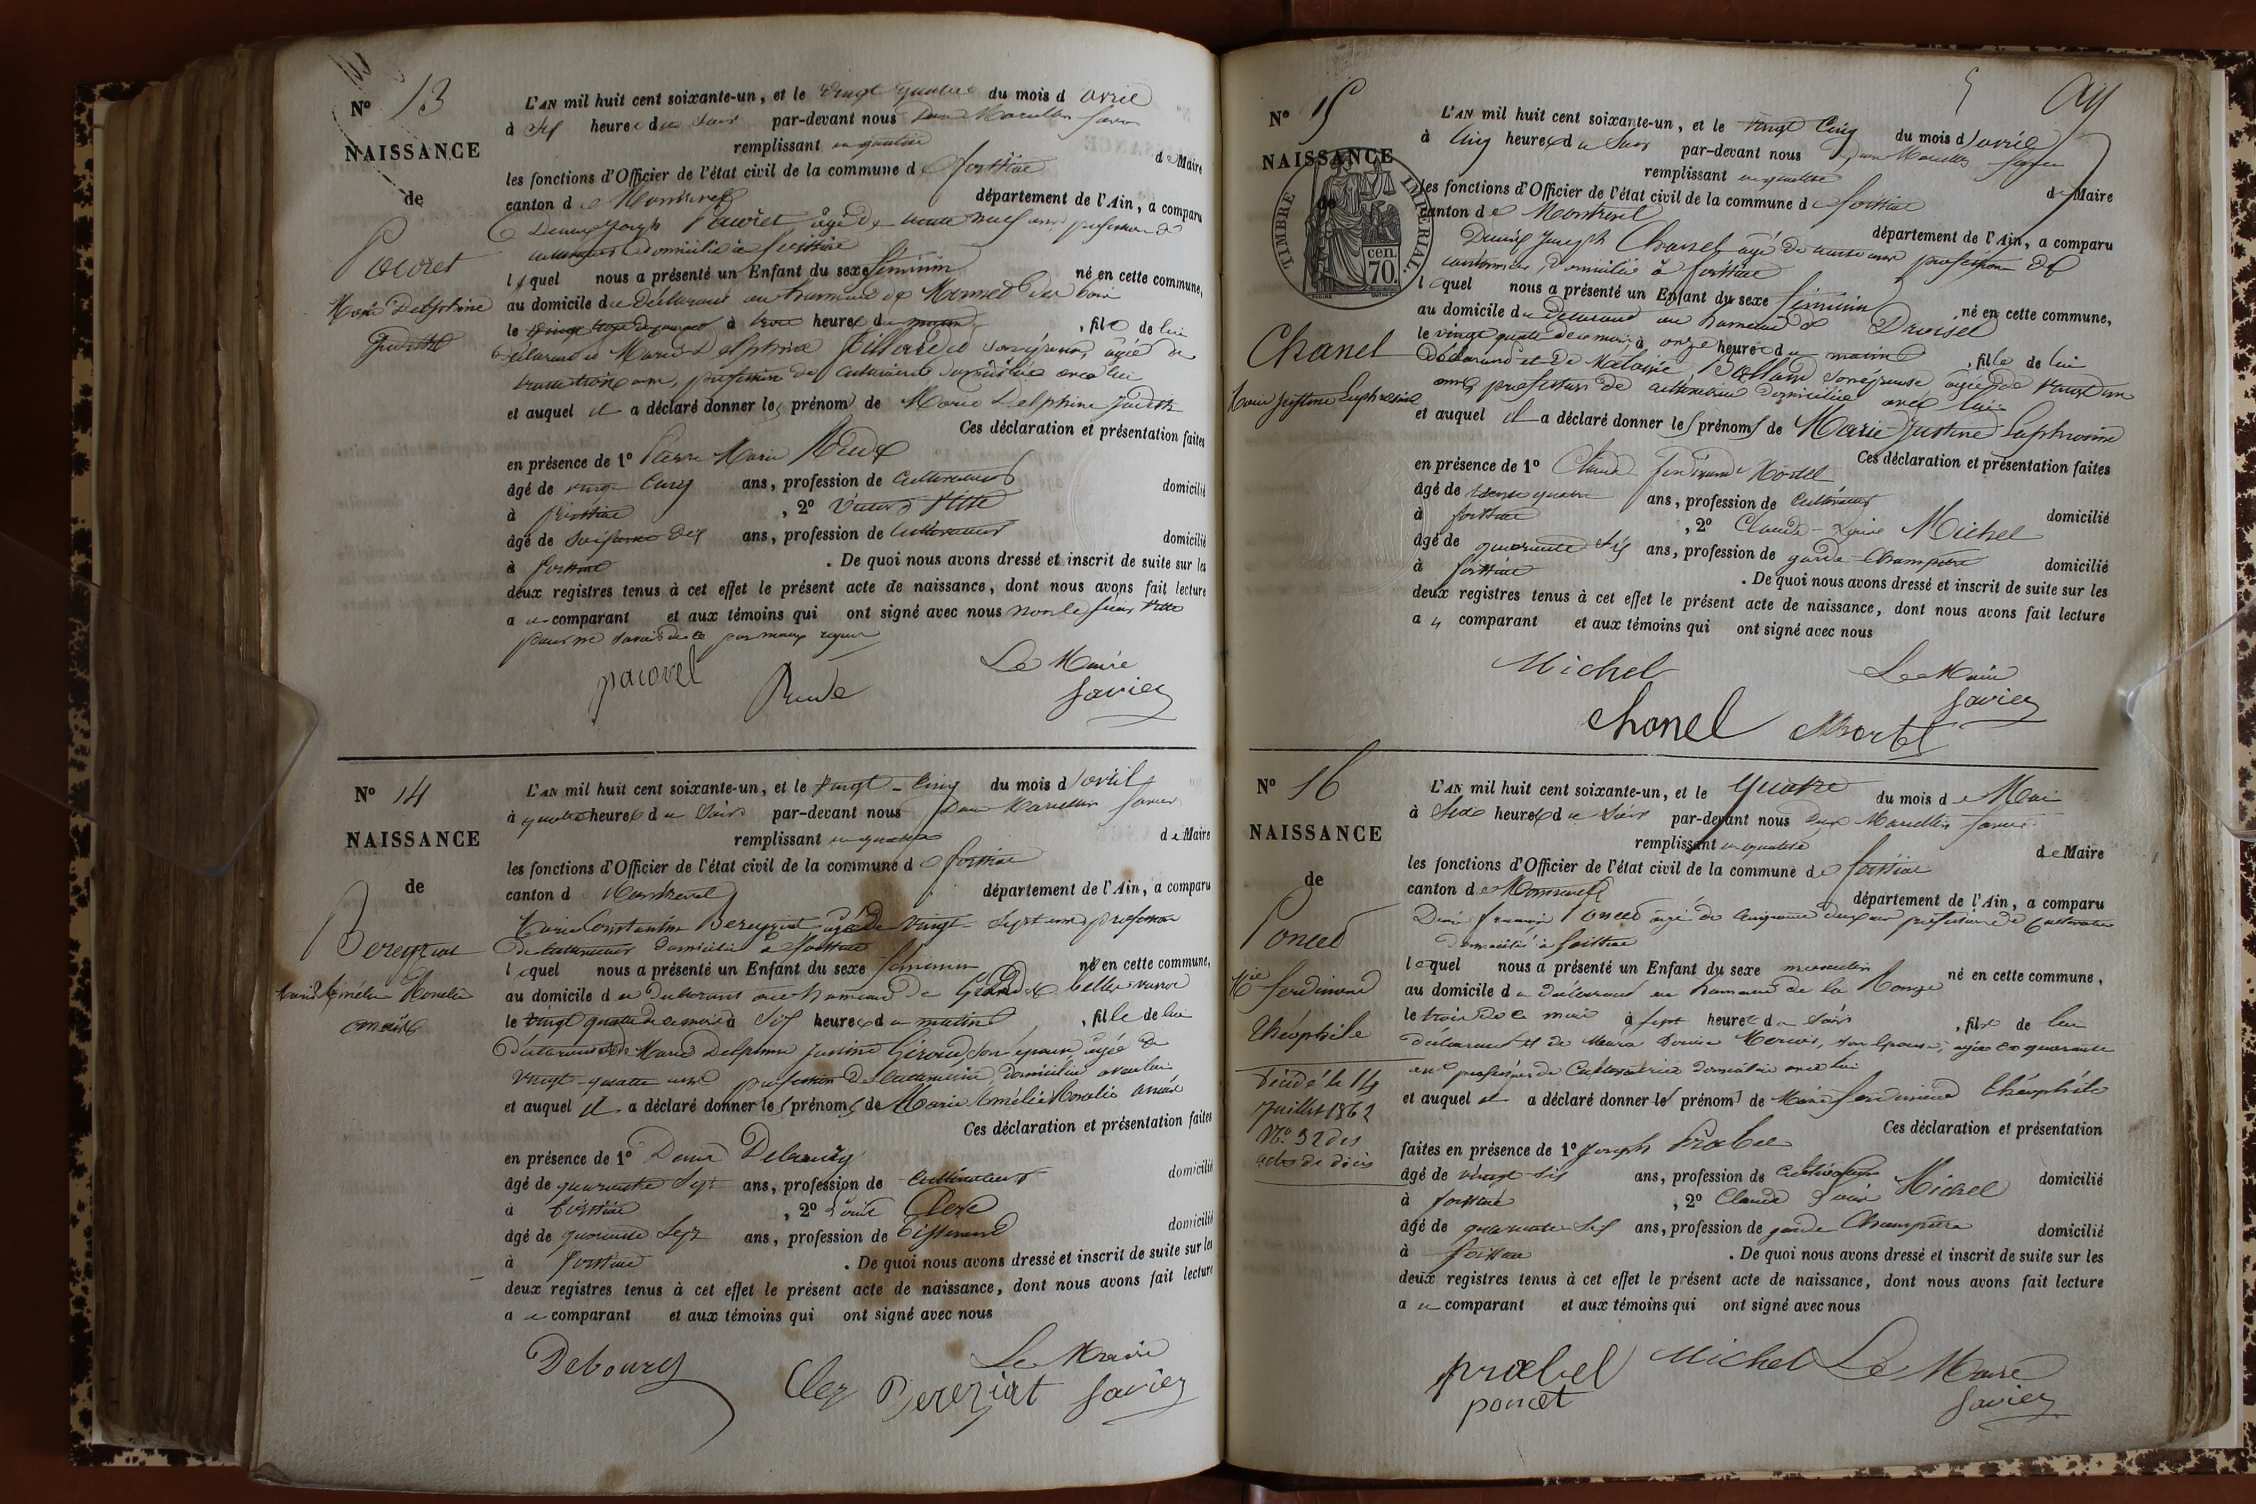 N° 13
NAISSANCE
de
Pacoret
Marie Delphine
L'AN mil huit cent soixante-un, et le vingt quatre du mois d'avril
à six heures du soir par-devant nous Marcellin Savier
remplissant en qualité de Maire
les fonctions d'Officier de l'état civil de la commune de foissiat
canton de Montrevel département de l'Ain, a comparu
Joseph âgé de trente neuf ans profession de
cultivateur domicilié à foissiat
lequel nous a présenté un Enfant du sexe féminin né en cette commune,
au domicile du déclarant au hameau de
le vingt trois à trois heures du matin, fille de lui
déclarant et de Marie Delphine son épouse, âgée de
trente trois ans, profession de cultivatrice domiciliée avec lui
et auquel il a déclaré donner les prénoms de Marie Delphine
Ces déclaration et présentation faites
en présence de 1° Pierre Marie
âgé de vingt cinq ans, profession de cultivateur domicilié
à foissiat, 2°
âgé de soixante dix ans, profession de cultivateur domicilié
à foissiat. De quoi nous avons dressé et inscrit de suite sur les
deux registres tenus à cet effet le présent acte de naissance, dont nous avons fait lecture
au comparant et aux témoins qui ont signé avec nous non le sieur
pour ne savoir de ce
pacoret Le Maire
Savier
N° 14
NAISSANCE
de
Bereyziat
Marie Amélie
L'AN mil huit cent soixante-un, et le vingt-cinq du mois d'avril
à quatre heures du soir par-devant nous Marcellin Savier
remplissant en qualité de Maire
les fonctions d'Officier de l'état civil de la commune de foissiat
canton de Montrevel département de l'Ain, a comparu
Marie Constantin Bereyziat âgé de vingt-sept ans profession
de cultivateur domicilié à foissiat
lequel nous a présenté un Enfant du sexe féminin né en cette commune,
au domicile du déclarant au hameau de
le vingt quatre de ce mois à six heures du matin, fille de lui
déclarant et de Marie Delphine Justine son épouse âgée de
vingt-quatre ans profession de cultivatrice, domiciliée avec lui
et auquel il a déclaré donner les prénoms de Marie Amélie
Ces déclaration et présentation faites
en présence de 1° Denis Debourg
âgé de quarante sept ans, profession de cultivateur domicilié
à foissiat, 2° Clerc
âgé de quarante sept ans, profession de Tisserand domicilié
à foissiat. De quoi nous avons dressé et inscrit de suite sur les
deux registres tenus à cet effet le présent acte de naissance, dont nous avons fait lecture
au comparant et aux témoins qui ont signé avec nous
Le Maire
Debourg Clerc Bereziat Savier
N° 15
NAISSANCE
de
TIMBRE IMPÉRIAL.
70 cen.
Chanel
Marie Justine Euphrosine
L'AN mil huit cent soixante-un, et le vingt cinq du mois d'avril
à cinq heures du soir par-devant nous Marcellin Savier
remplissant en qualité de Maire
les fonctions d'Officier de l'état civil de la commune de foissiat
canton de Montrevel département de l'Ain, a comparu
Joseph Chanel âgé de trente ans profession de
domicilié à foissiat
lequel nous a présenté un Enfant du sexe féminin né en cette commune,
au domicile du déclarant au hameau de
le vingt quatre de ce mois, à onze heures du matin, fille de lui
déclarant et de son épouse âgée de vingt un
ans profession de cultivatrice domiciliée avec lui
et auquel il a déclaré donner les prénoms de Marie Justine Euphrosine
Ces déclaration et présentation faites
en présence de 1° Claude
âgé de trente quatre ans, profession de cultivateur domicilié
à foissiat, 2° Claude-Louis Michel
âgé de quarante six ans, profession de garde-champêtre domicilié
à foissiat. De quoi nous avons dressé et inscrit de suite sur les
deux registres tenus à cet effet le présent acte de naissance, dont nous avons fait lecture
au comparant et aux témoins qui ont signé avec nous
Michel Le Maire
Savier
Chanel
N° 16
NAISSANCE
de
Poncet
Mie ferdinand
Théophile
Décédé le 14
Juillet 1862
N° 32 des
actes de décès
L'AN mil huit cent soixante-un, et le quatre du mois de Mai
à six heures du soir par-devant nous Marcellin Savier
remplissant en qualité de Maire
les fonctions d'Officier de l'état civil de la commune de foissiat
canton de Montrevel département de l'Ain, a comparu
françois Poncet âgé de cinquante deux ans profession de cultivateur
domicilié à foissiat
lequel nous a présenté un Enfant du sexe masculin né en cette commune,
au domicile du déclarant au hameau de la
le trois de ce mois à sept heures du soir, fils de lui
déclarant et de Marie Louise son épouse, âgée de quarante
ans profession de cultivatrice domiciliée avec lui
et auquel il a déclaré donner les prénoms de Marie ferdinand Théophile
Ces déclaration et présentation
faites en présence de 1° Joseph Prabel
âgé de vingt six ans, profession de cultivateur domicilié
à foissiat, 2° Claude Louis Michel
âgé de quarante six ans, profession de garde champêtre domicilié
à foissiat. De quoi nous avons dressé et inscrit de suite sur les
deux registres tenus à cet effet le présent acte de naissance, dont nous avons fait lecture
au comparant et aux témoins qui ont signé avec nous
prabel Michel Le Maire
poncet Savier